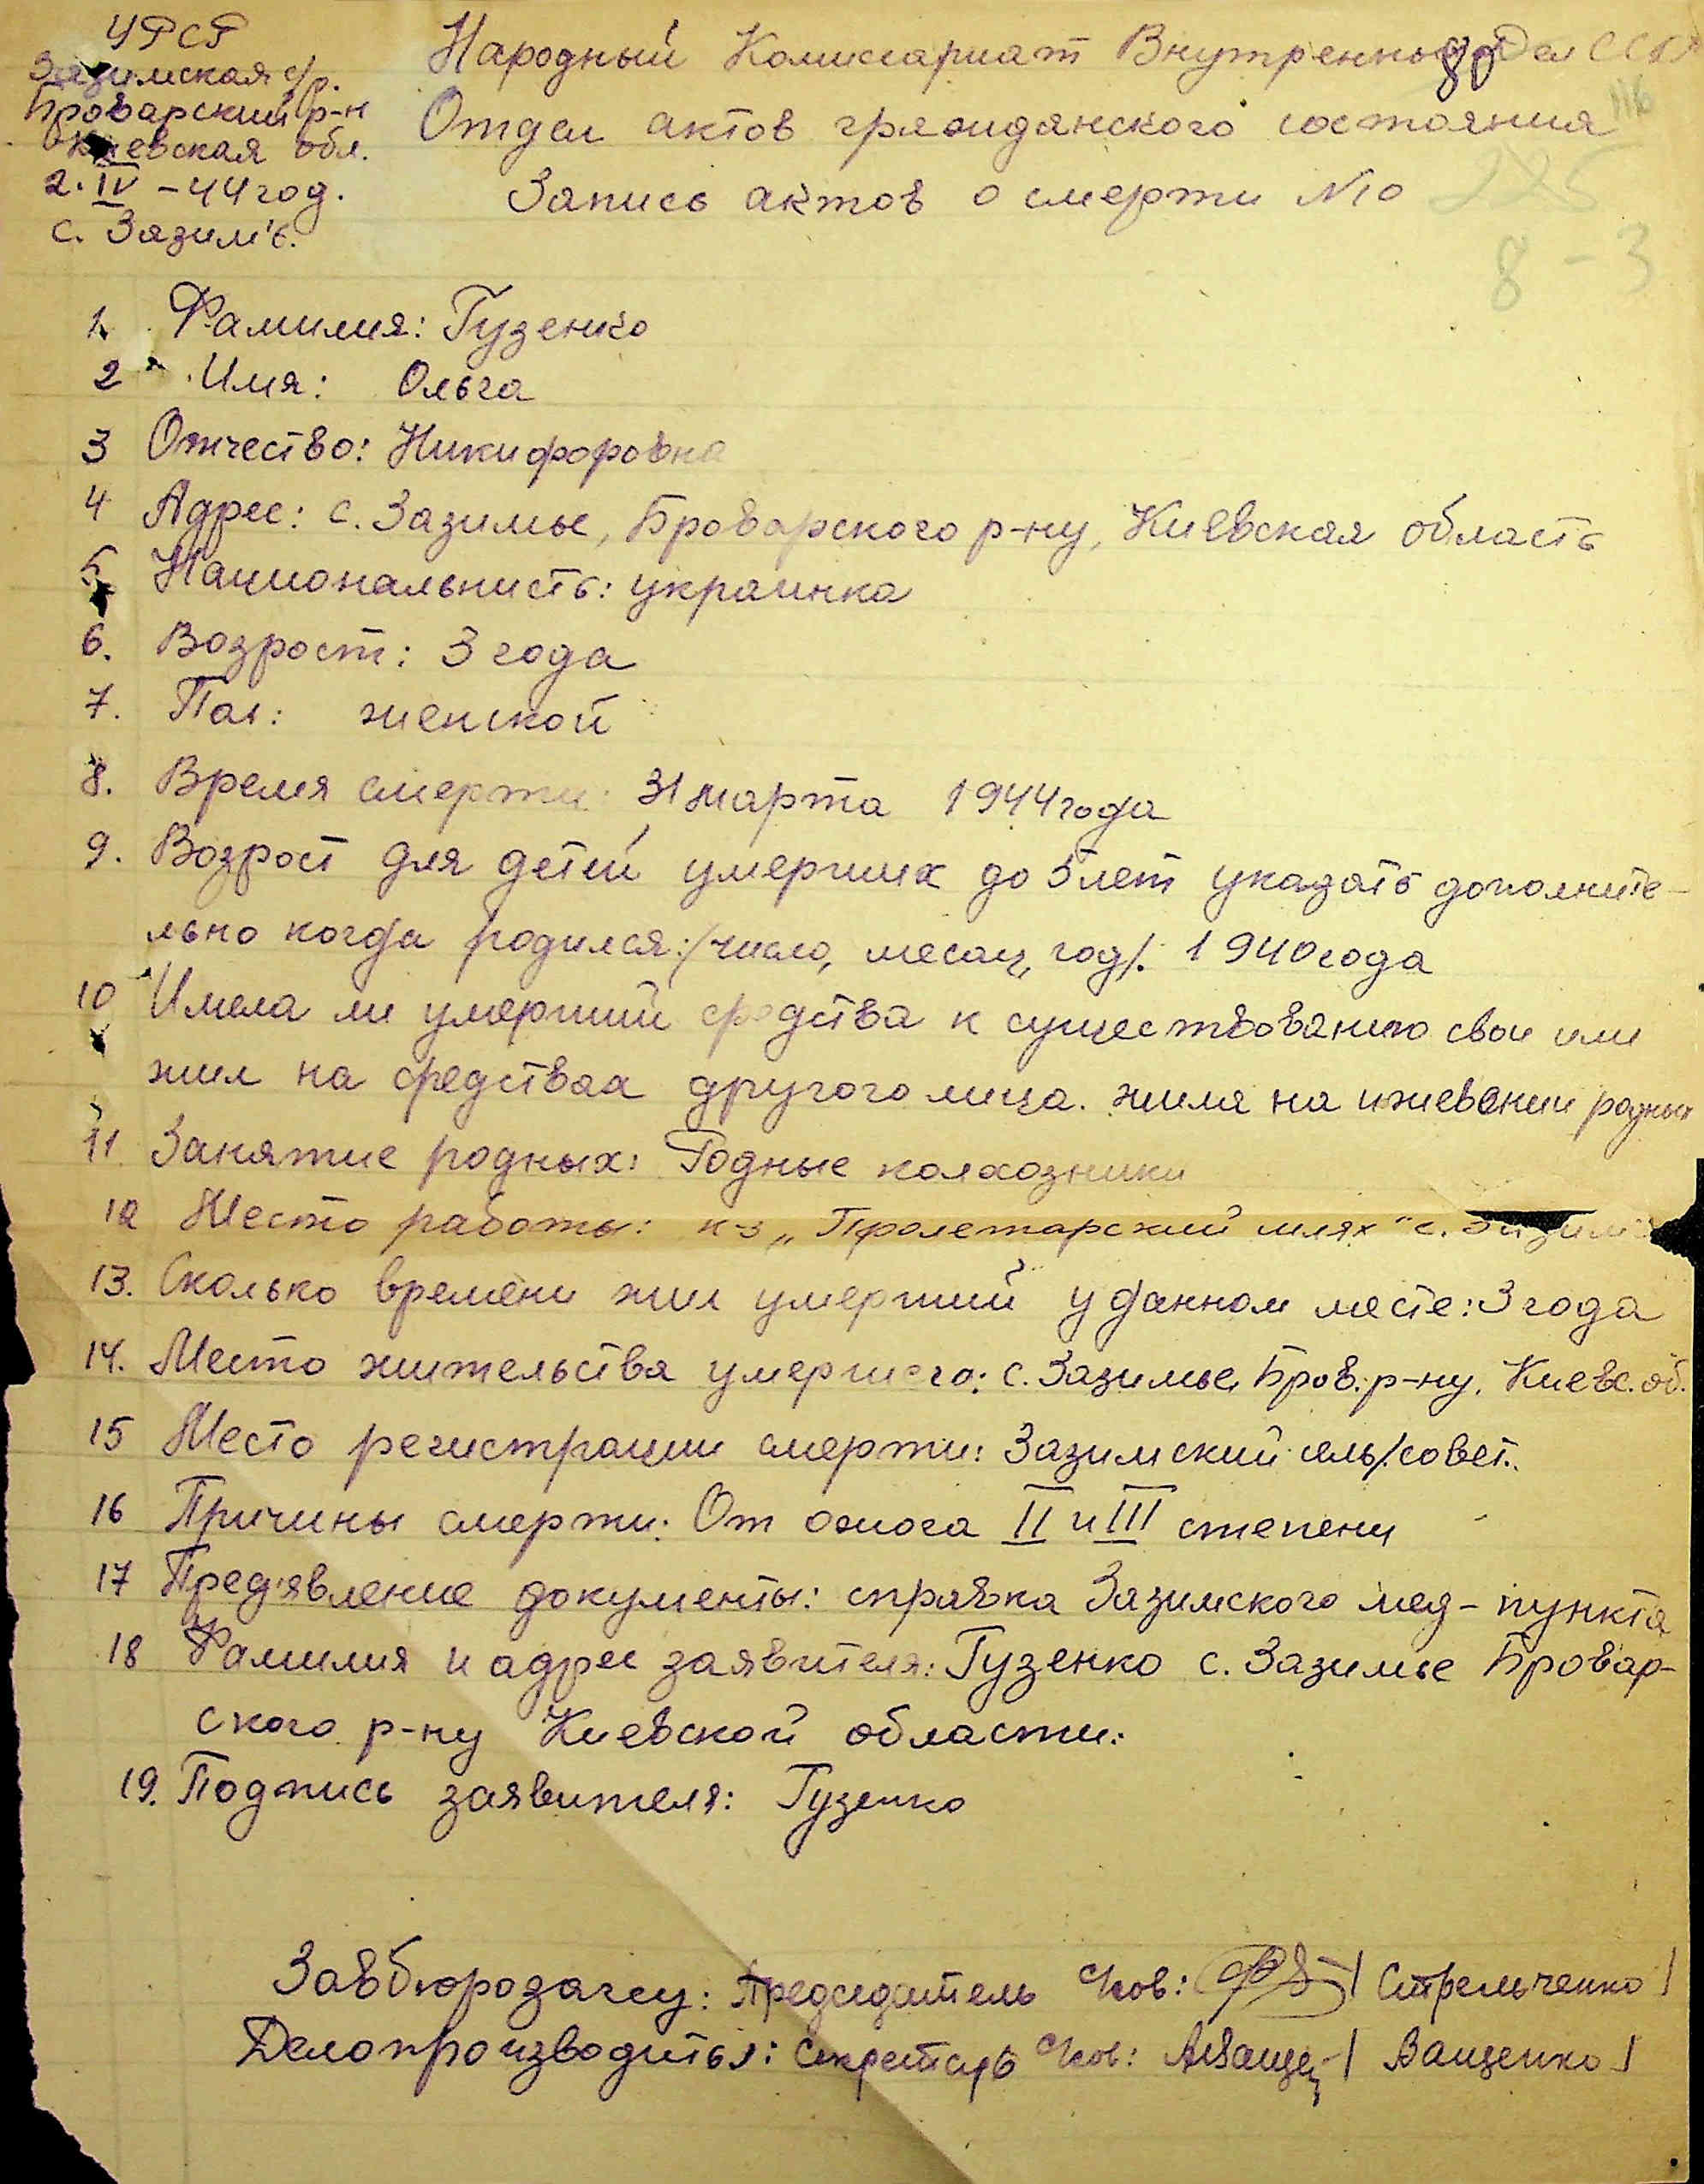 УРСР
Зазимская с/р.
Броварский р-н
Киевская обл.
2. IV – 44 год.
с. Зазим'є.
Народный Комиссариат Внутренных Дел СССР
Отдел актов гражиданского состояния
Запись актов о смерти №10
8 – 3
1. Фамилия: Гузенко
2. Имя: Ольга
3 Отчество: Никифоровна
4 Адрес: с. Зазимье, Броварского р-ну, Киевская область
5 Национальнисть: украинка
6. Возрост: 3 года
7. Пол: женской
8. Время смерти: 31 марта 1944 года
9. Возрост для детей умерших до 5 лет указать дополните-
льно когда родился:/число, месац, год/. 1940 года
10 Имела ли умерший средства к существованию свои или
жил на средствах другого лица. жила на ижевении родных
11 Занятие родных: Родные колхозники
12 Место работы: к-з „Пролетарский шлях" с. Зазим'є
13. Сколько времени жил умерший у данном месте: 3 года
14. Место жительства умершего: с. Зазимье, Бров. р-ну. Киевс. об.
15 Место регистрации смерти: Зазимский сель/совет.
16 Причины смерти: От ожога II и III степени
17 Пред'явление документы: справка Зазимского мед-пункта
18 Фамилия и адрес заявителя: Гузенко с. Зазимье Бровар-
ского р-ну Киевской области.
19. Подпись заявителя: Гузенко
Завбюрозагсу: Председатель с/сов: / Стрельченко /
Делопроизводитель: Секретарь с/сов: АВаще / Ващенко /